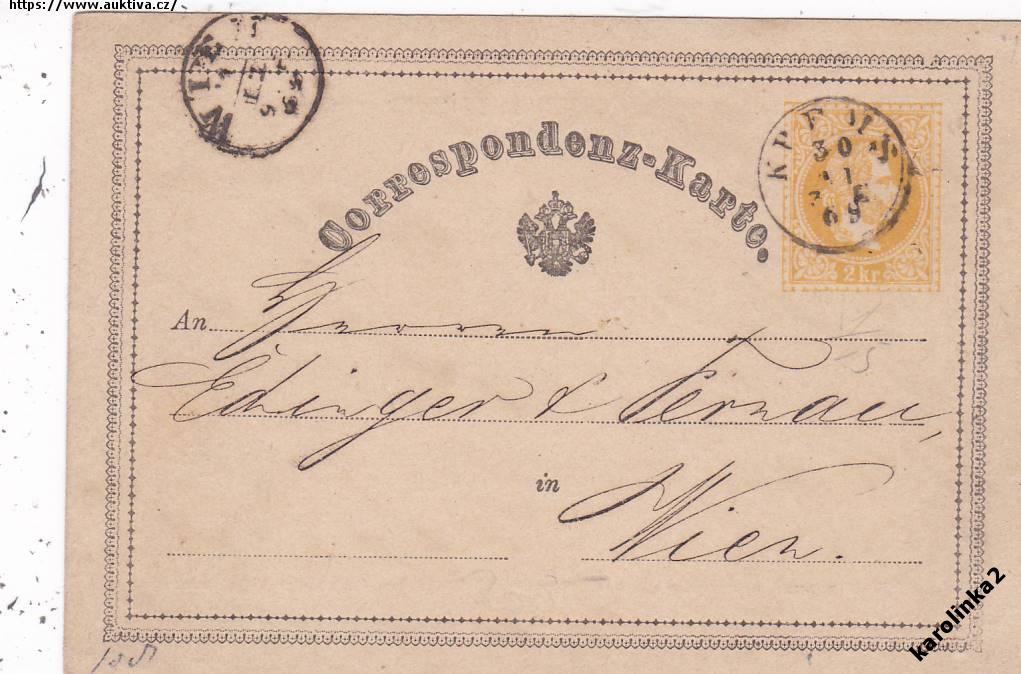 https://www.auktiva.cz/
WIEN
Correspondenz-Karte.
KREMS
30
11
69
2 kr.
An Herren
Edinger & Fernau,
in Wien.
karolinka2